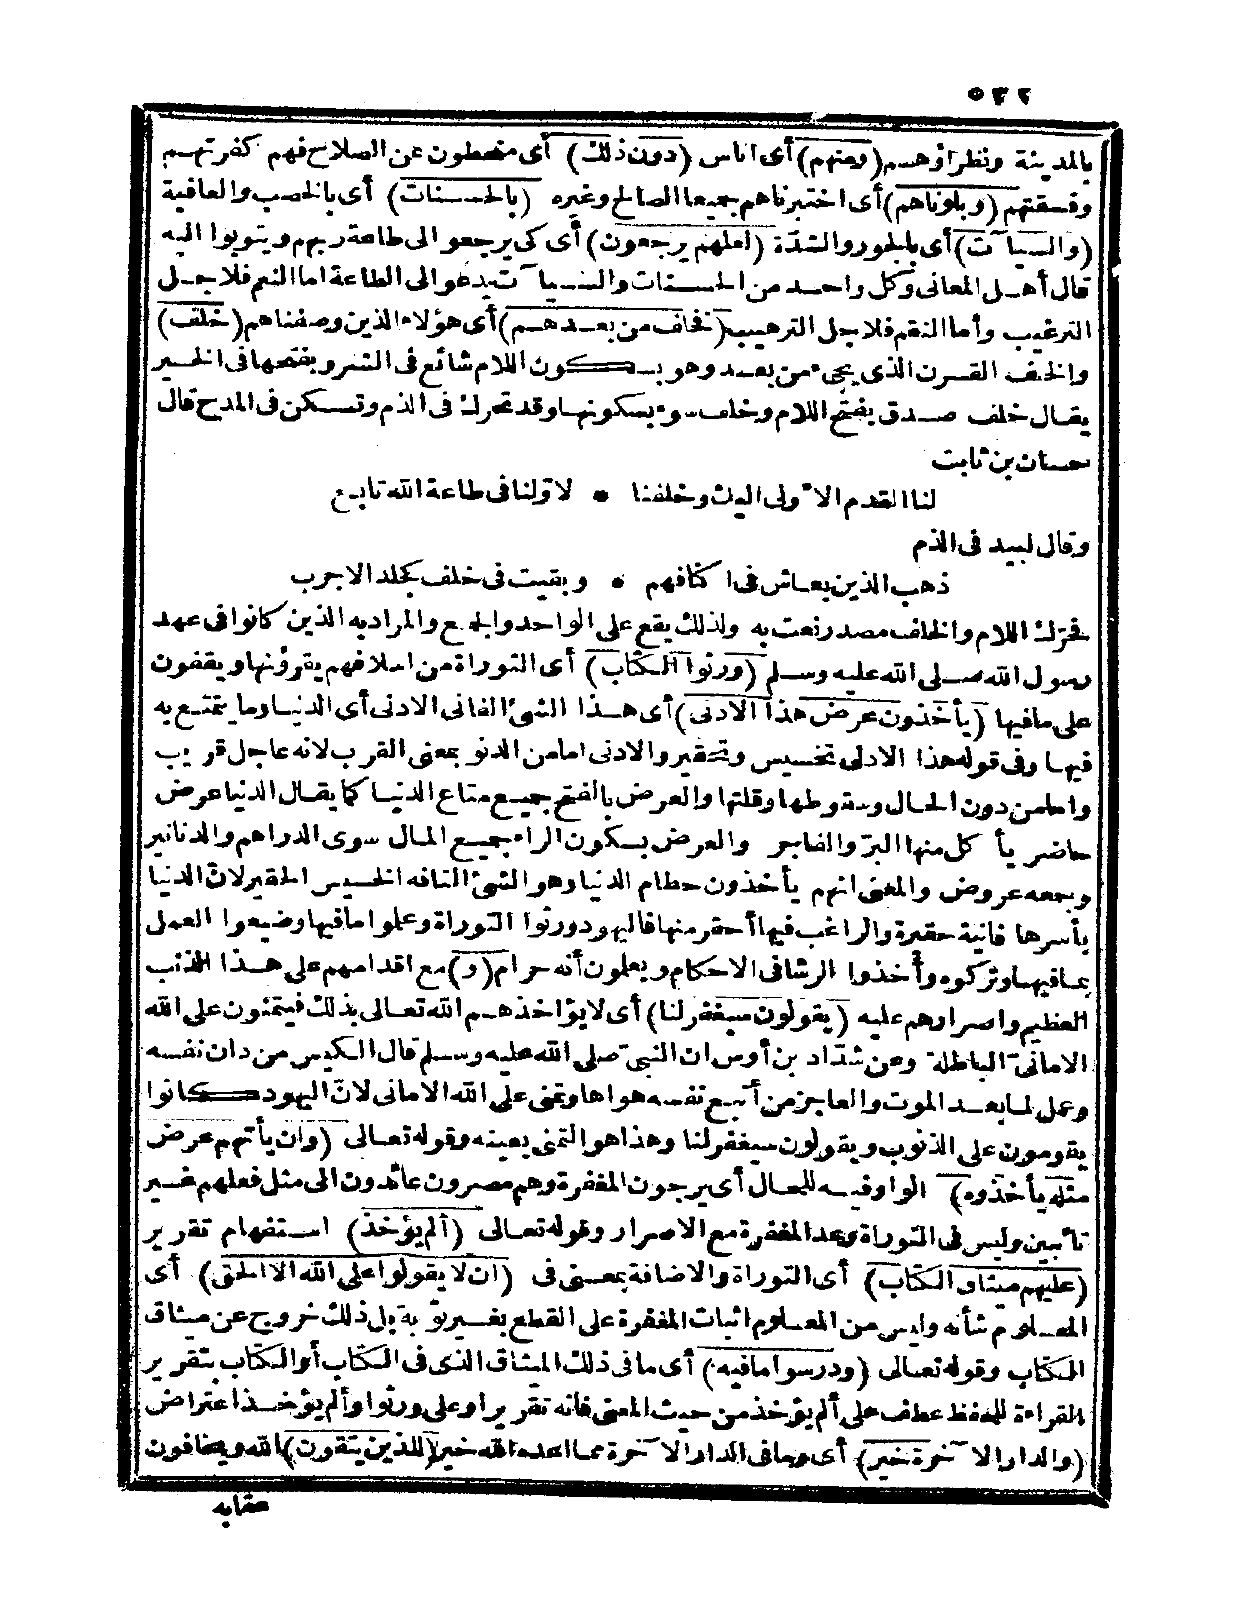 ٥٣٢
بالمدينة ونظراؤهم (ومنهم) أى اناس (دون ذلك) أى منحطون عن الصلاح فهم كفرتهم
وفسقتهم (وبلوناهم) أى اختبرناهم جميعا الصالح وغيره (بالحسنات) أى بالخصب والعافية
(والسيآت) أى بالجور والشدّة (لعلهم يرجعون) أى كى يرجعوا الى طاعة ربهم ويتوبوا اليه
قال أهل المعانى وكل واحد من الحسنات والسيآت يدعو الى الطاعة اما النعم فلاجل
الترغيب وأما النقم فلاجل الترهيب (فخلف من بعدهم) أى هؤلاء الذين وصفناهم (خلف)
والخلف القرن الذى يجىء من بعد وهو بسكون اللام شائع فى الشر وبفتحها فى الخير
يقال خلف صدق بفتح اللام وخلف سوء بسكونها وقد تحرك فى الذم وتسكن فى المدح قال
حسان بن ثابت
لنا القدم الاولى اليك وخلفنا * لاوّلنا فى طاعة الله تابع
وقال لبيد فى الذم
ذهب الذين يعاش فى اكنافهم * وبقيت فى خلف كجلد الاجرب
فحرّك اللام والخلف مصدر نعت به ولذلك يقع على الواحد والجمع والمراد به الذين كانوا فى عهد
رسول الله صلى الله عليه وسلم (ورثوا الكتاب) أى التوراة من اسلافهم يقرؤنها ويقفون
على مافيها (يأخذون عرض هذا الادنى) أى هذا الشئ الفانى الادنى أى الدنيا وما يتمتع به
فيها وفى قوله هذا الادنى تخسيس وتحقير والادنى امامن الدنو بمعنى القرب لانه عاجل قريب
وامامن دون الحال وسقوطها وقلتها والعرض بالفتح جميع متاع الدنيا كما يقال الدنيا عرض
حاضر يأ كل منها البرّ والفاجر والعرض بسكون الراء جميع المال سوى الدراهم والدنانير
وجمعه عروض والمعنى انهم يأخذون حطام الدنيا وهو الشئ التافه الخسيس الحقير لانّ الدنيا
بأسرها فانية حقيرة والراغب فيها أحقر منها فاليهود ورثوا التوراة وعلموا مافيها وضيعوا العمل
بمافيها وتركوه وأخذوا الرشا فى الاحكام ويعلمون أنه حرام (و) مع اقدامهم على هذا الذنب
العظيم واصرارهم عليه (يقولون سيغفر لنا) أى لايؤاخذهم الله تعالى بذلك فيتمنون على الله
الامانىّ الباطلة وعن شدّاد بن أوس ان النبىّ صلى الله عليه وسلم قال الكيس من دان نفسه
وعمل لما بعد الموت والعاجز من أتبع نفسه هواها وتمنى على الله الامانى لانّ اليهود كانوا
يقومون على الذنوب ويقولون سيغفر لنا وهذا هو التمنى بعينه وقوله تعالى (وان يأتهم عرض
مثله يأخذوه) الواو فيه للحال أى يرجون المغفرة وهم مصرون عائدون الى مثل فعلهم غير
تائبين وليس فى التوراة وعد المغفرة مع الاصرار وقوله تعالى (ألم يؤخذ) استفهام تقرير
(عليهم ميثاق الكتاب) أى التوراة والاضافة بمعنى فى (ان لا يقولوا على الله الا الحق) أى
المعلوم شأنه وليس من المعلوم اثبات المغفرة على القطع بغير توبة بل ذلك خروج عن ميثاق
الكتاب وقوله تعالى (ودرسوا مافيه) أى مافى ذلك الميثاق الذى فى الكتاب أو الكتاب بتقرير
القراءة للحفظ عطف على ألم يؤخذ من حيث المعنى فانه تقرير او على ورثوا وألم يؤخذ اعتراض
(والدار الآخرة خير) أى وما فى الدار الآخرة مما اعده الله خير (للذين يتقون) الله ويخافون
عقابه